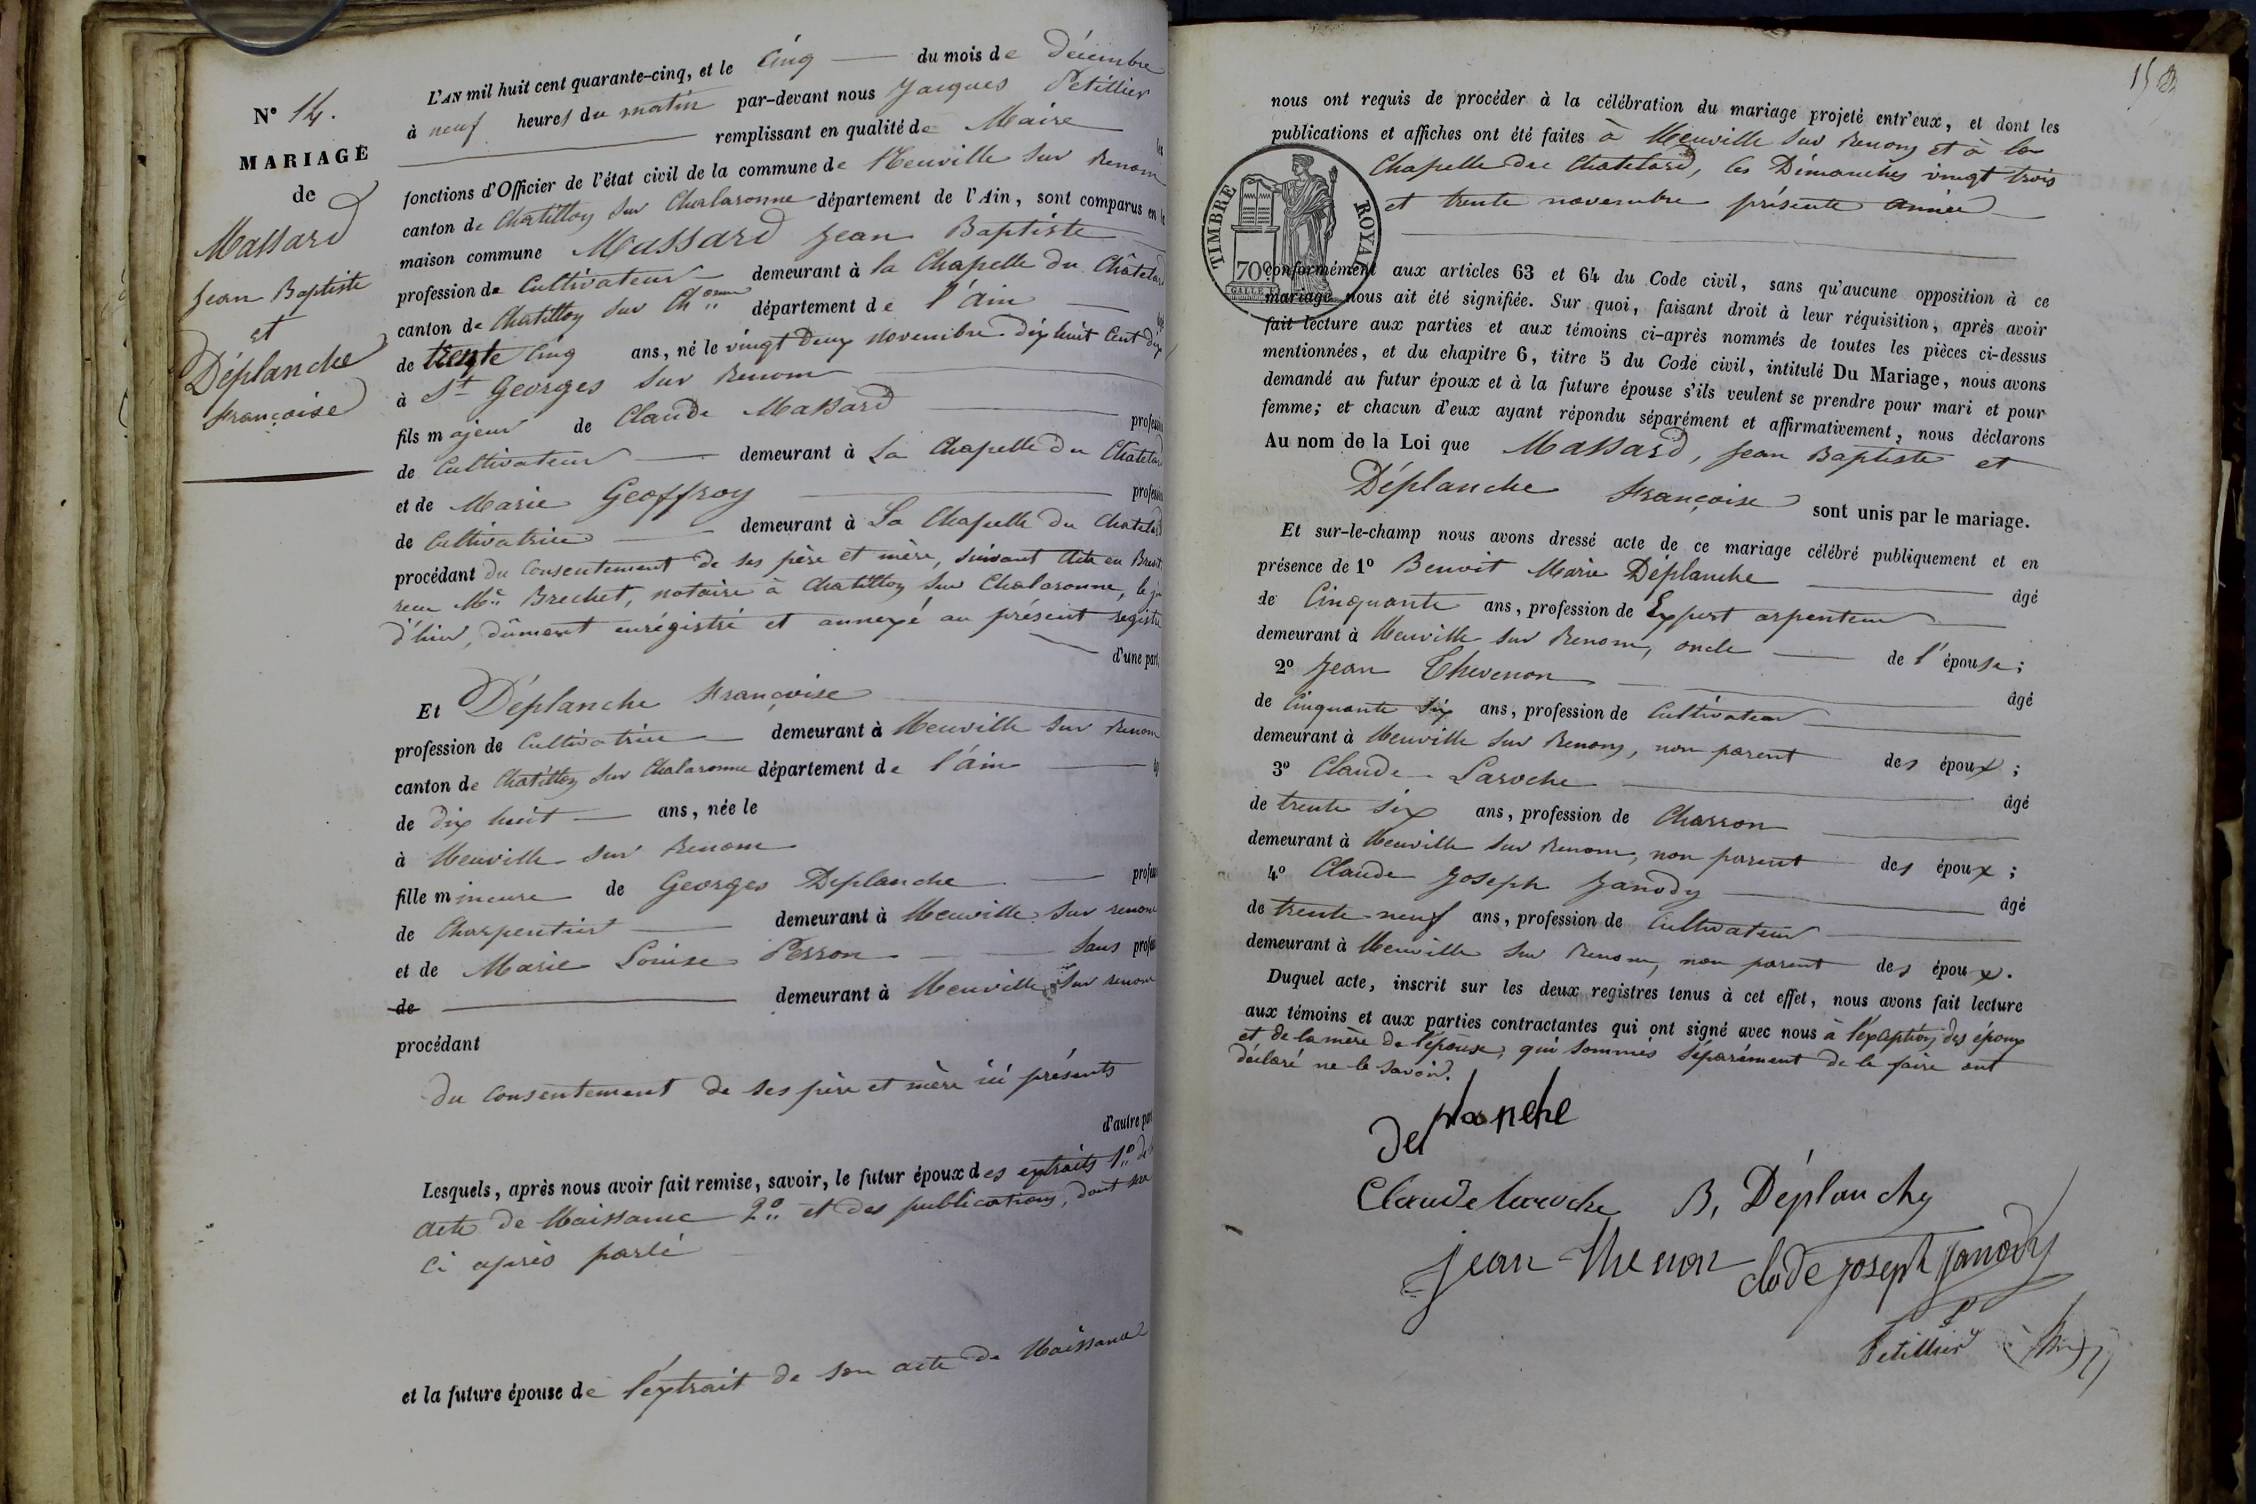 N° 14.
MARIAGE
de
Massard
Jean Baptiste
et
Déplanche
françoise
L'AN mil huit cent quarante-cinq, et le cinq du mois de décembre
à neuf heures du matin par-devant nous Jacques Petillier
remplissant en qualité de Maire les
fonctions d'Officier de l'état civil de la commune de Neuville sur Renom
canton de Chatillon sur Chalaronne département de l'Ain, sont comparus en la
maison commune Massard Jean Baptiste
profession de Cultivateur demeurant à la Chapelle du Châtelard
canton de Chatillon sur Ch.onne département de l'Ain âgé
de trente cinq ans, né le vingt deux novembre dix huit cent dix
à St Georges sur Renom
fils majeur de Claude Massard profession
de Cultivateur demeurant à La Chapelle du Chatelard
et de Marie Geoffroy profession
de Cultivatrice demeurant à La Chapelle du Chatelard
procédant du consentement de ses père et mère, suivant acte en Brevet
reçu Me Brechet, notaire à Chatillon sur Chalaronne, le jour
d'hier, dûment enrégistré et annexé au présent registre
d'une part,
Et Déplanche françoise
profession de Cultivatrice demeurant à Neuville sur Renom
canton de Chatillon sur Chalaronne département de l'ain âgée
de dix huit ans, née le
à Neuville sur Renom
fille mineure de Georges Déplanche profession
de Charpentier demeurant à Neuville sur renom
et de Marie Louise Perron Sans profession
de demeurant à Neuville sur renom
procédant
du consentement de ses père et mère ici présents
d'autre part
Lesquels, après nous avoir fait remise, savoir, le futur époux des extraits 1° de son
acte de Naissance 2° et des publications, dont sera
ci après parlé
et la future épouse de l'extrait de son acte de Naissance
nous ont requis de procéder à la célébration du mariage projeté entr'eux, et dont les
publications et affiches ont été faites à Neuville sur Renom et à la
Chapelle du Chatelard, les Dimanches vingt trois
et trente novembre présente année
TIMBRE ROYAL
70c
conformément aux articles 63 et 64 du Code civil, sans qu'aucune opposition à ce
mariage nous ait été signifiée. Sur quoi, faisant droit à leur réquisition, après avoir
fait lecture aux parties et aux témoins ci-après nommés de toutes les pièces ci-dessus
mentionnées, et du chapitre 6, titre 5 du Code civil, intitulé Du Mariage, nous avons
demandé au futur époux et à la future épouse s'ils veulent se prendre pour mari et pour
femme; et chacun d'eux ayant répondu séparément et affirmativement, nous déclarons
Au nom de la Loi que Massard, Jean Baptiste et
Déplanche françoise sont unis par le mariage.
Et sur-le-champ nous avons dressé acte de ce mariage célébré publiquement et en
présence de 1° Benoit Marie Déplanche âgé
de Cinquante ans, profession de Expert arpenteur
demeurant à Neuville sur Renom, oncle de l'épouse;
2° Jean Thevenon âgé
de Cinquante six ans, profession de Cultivateur
demeurant à Neuville sur Renom, non parent des époux;
3° Claude Laroche âgé
de trente six ans, profession de Charron
demeurant à Neuville sur Renom, non parent des époux;
4° Claude Joseph Janody âgé
de trente-neuf ans, profession de Cultivateur
demeurant à Neuville sur Renom, non parent des époux.
Duquel acte, inscrit sur les deux registres tenus à cet effet, nous avons fait lecture
aux témoins et aux parties contractantes qui ont signé avec nous à l'exception des époux
et de la mère de l'épouse, qui sommés séparément de le faire ont
déclaré ne le savoir.
deplanche
Claude laroche B, Déplanche
jean thenon clode joseph janody
Petillier